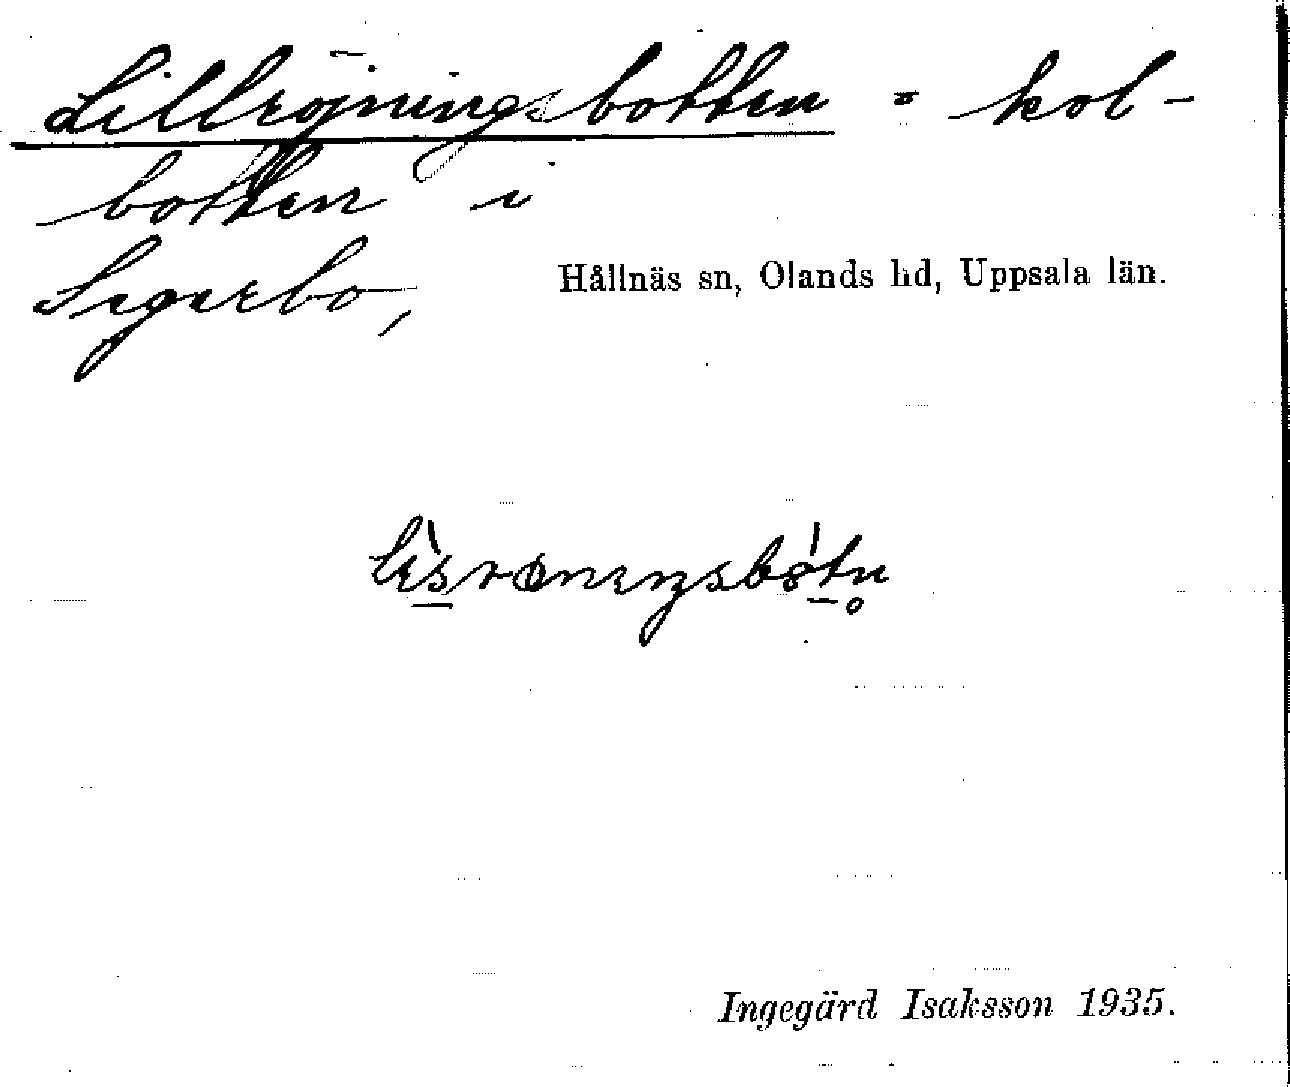 Lillröjningsbotten = kol-
botten i
Sigerbo,
Hållnäs sn, Olands hd, Uppsala län.
Ingegärd Isaksson 1935.